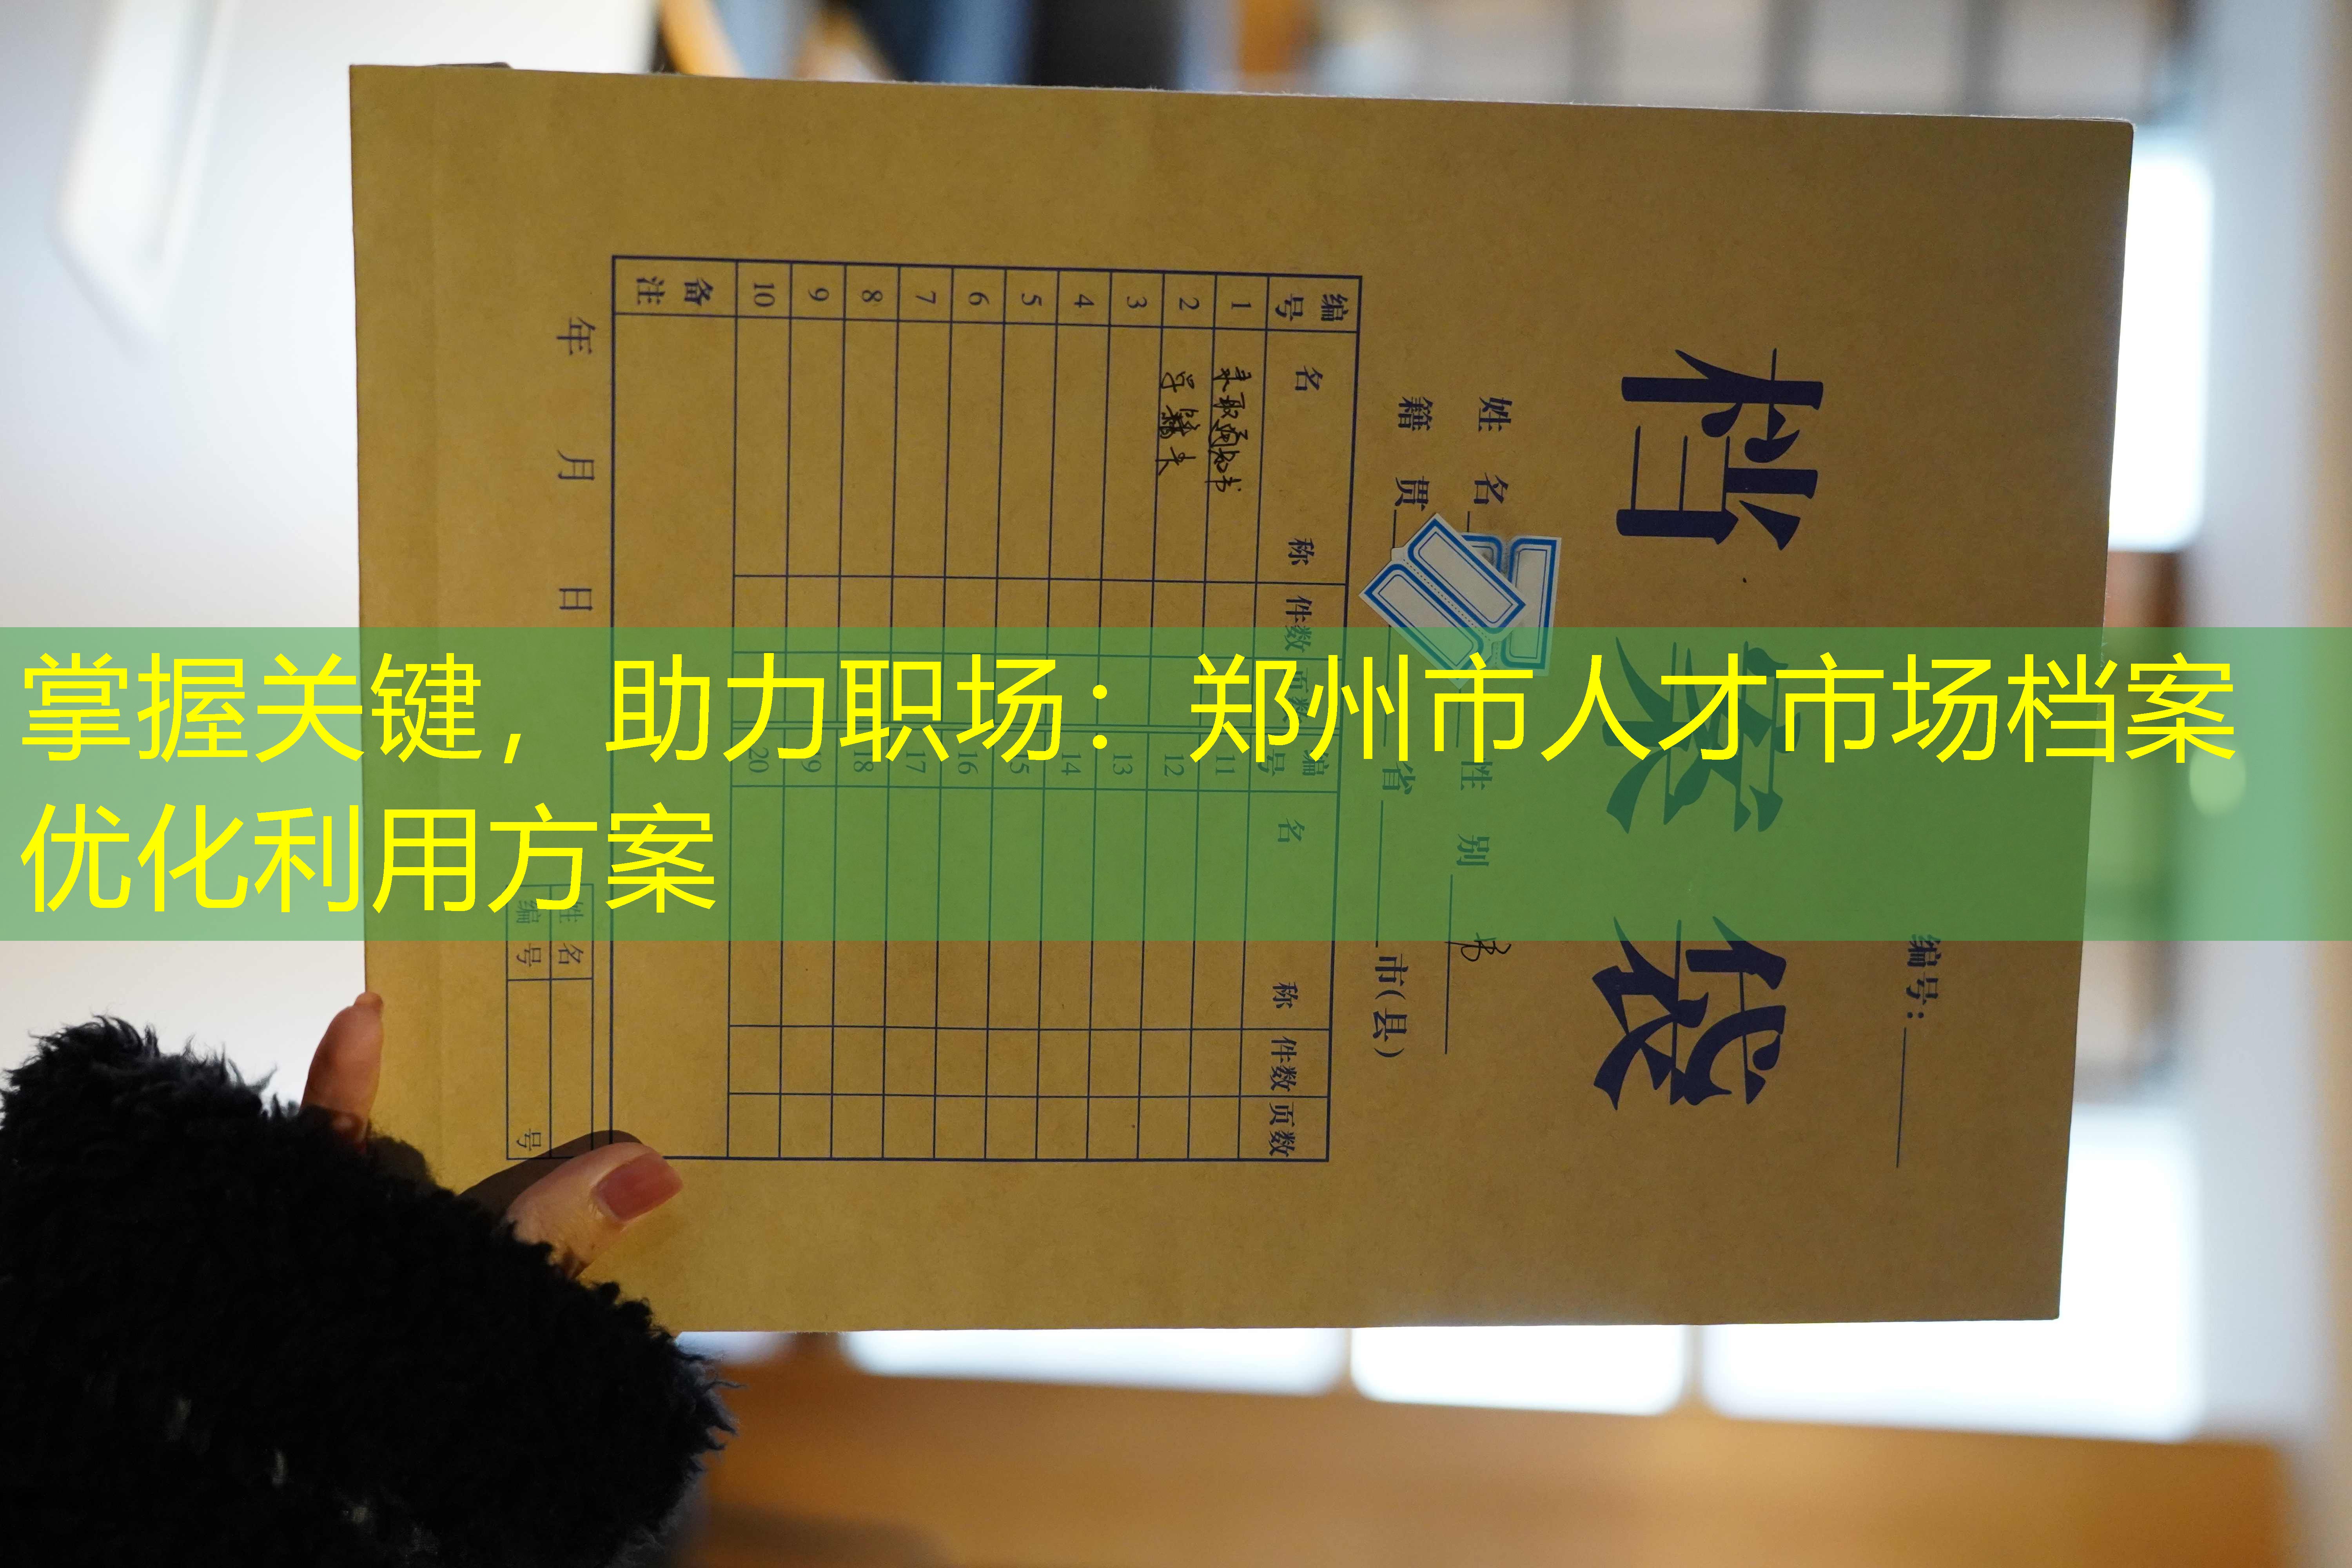 掌握关键，助力职场：郑州市人才市场档案
优化利用方案
档案袋
编号：
姓名 性别 男
籍贯 省 市(县)
编号 名称 件数 页数 编号 名称 件数 页数
1 录取通知书 11
2 学籍卡 12
3 13
4 14
5 15
6 16
7 17
8 18
9 19
10 20
备注
年 月 日
姓名
编号 号